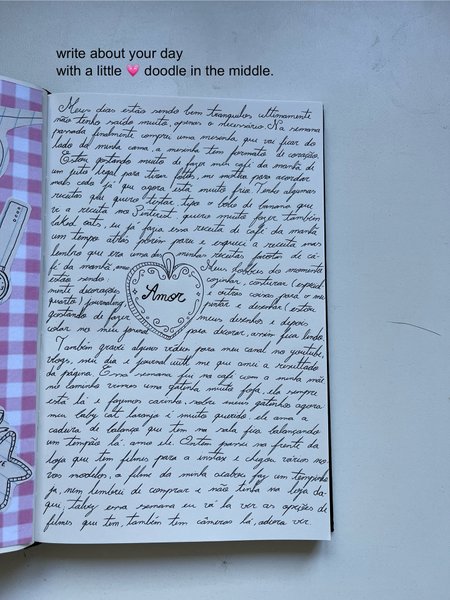 write about your day
with a little 💗 doodle in the middle.
Meus dias estão sendo bem tranquilos ultimamente
não tenho saído muito, apenas o necessário. Na semana
passada finalmente comprei uma mesinha que vai ficar do
lado da minha cama, a mesinha tem formato de coração.
Estou gostando muito de fazer meu café da manhã de
um jeito legal para tirar fotos, me motiva para acordar
mais cedo já que agora está muito frio. Tenho algumas
receitas que quero testar, tipo o bolo de banana que
vi a receita no Pinterest, quero muito fazer também
baked oats, eu já fazia essa receita de café da manhã
um tempo atrás porém parei e esqueci a receita mas
lembro que era uma das minhas receitas favoritas de ca-
fé da manhã. Meus hobbies do momento
estão sendo: cozinhar, costurar (especial-
mente decorações e outras coisas para o meu
quarto) journaling, pintar e desenhar (estou
gostando de fazer meus desenhos e depois
colar no meu journal para decorar, assim fica lindo.
Também gravei alguns vídeos para meu canal no youtube,
vlogs, meu dia e journal with me que amei o resultado
da página. Essa semana fui na café com a minha mãe
no caminho vimos uma gatinha muito fofa, ela sempre
está lá e fazemos carinho, sobre meus gatinhos agora
meu baby cat laranja é muito querido, ele ama a
cadeira de balança que tem na sala fica balançando
um tempão lá. amo ele. Ontem passei na frente da
loja que tem filmes para a instax e chegou vários no-
vos modelos, o filme da minha acabou faz um tempinho
já, nem lembrei de comprar e não tinha na loja da-
qui, talvez essa semana eu vá lá ver as opções de
filmes que tem, também tem câmeras lá, adoro ver.
Amor